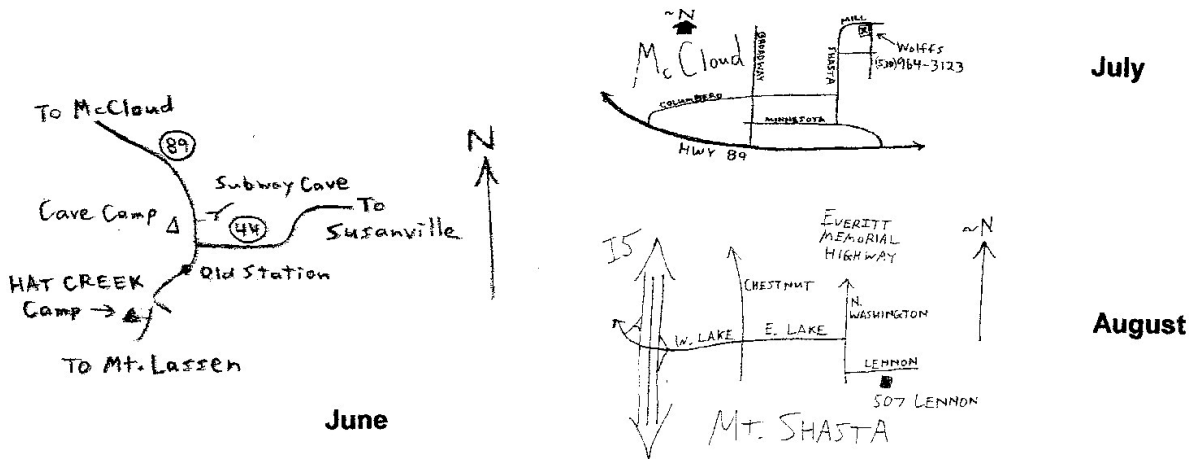 To McCloud
89
Subway Cave
Cave Camp
44
To
Susanville
Old Station
HAT CREEK
Camp
To Mt. Lassen
N
June
~N
McCloud
BROADWAY
SHASTA
MILL
Wolffs
(530)964-3123
COLUMBERO
MINNESOTA
HWY 89
July
I5
EVERITT
MEMORIAL
HIGHWAY
~N
CHESTNUT
N.
WASHINGTON
W. LAKE
E. LAKE
LENNON
507 LENNON
MT. SHASTA
August